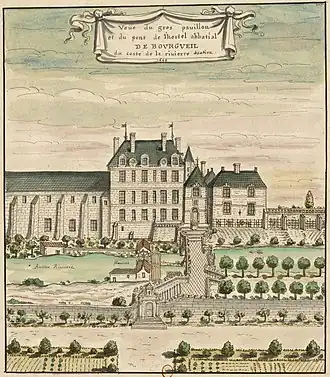 Veue du gros pavillon
et du pont de lhostel abbatial
DE BOURGUEIL
du costé de la riviere
1699
Riviere